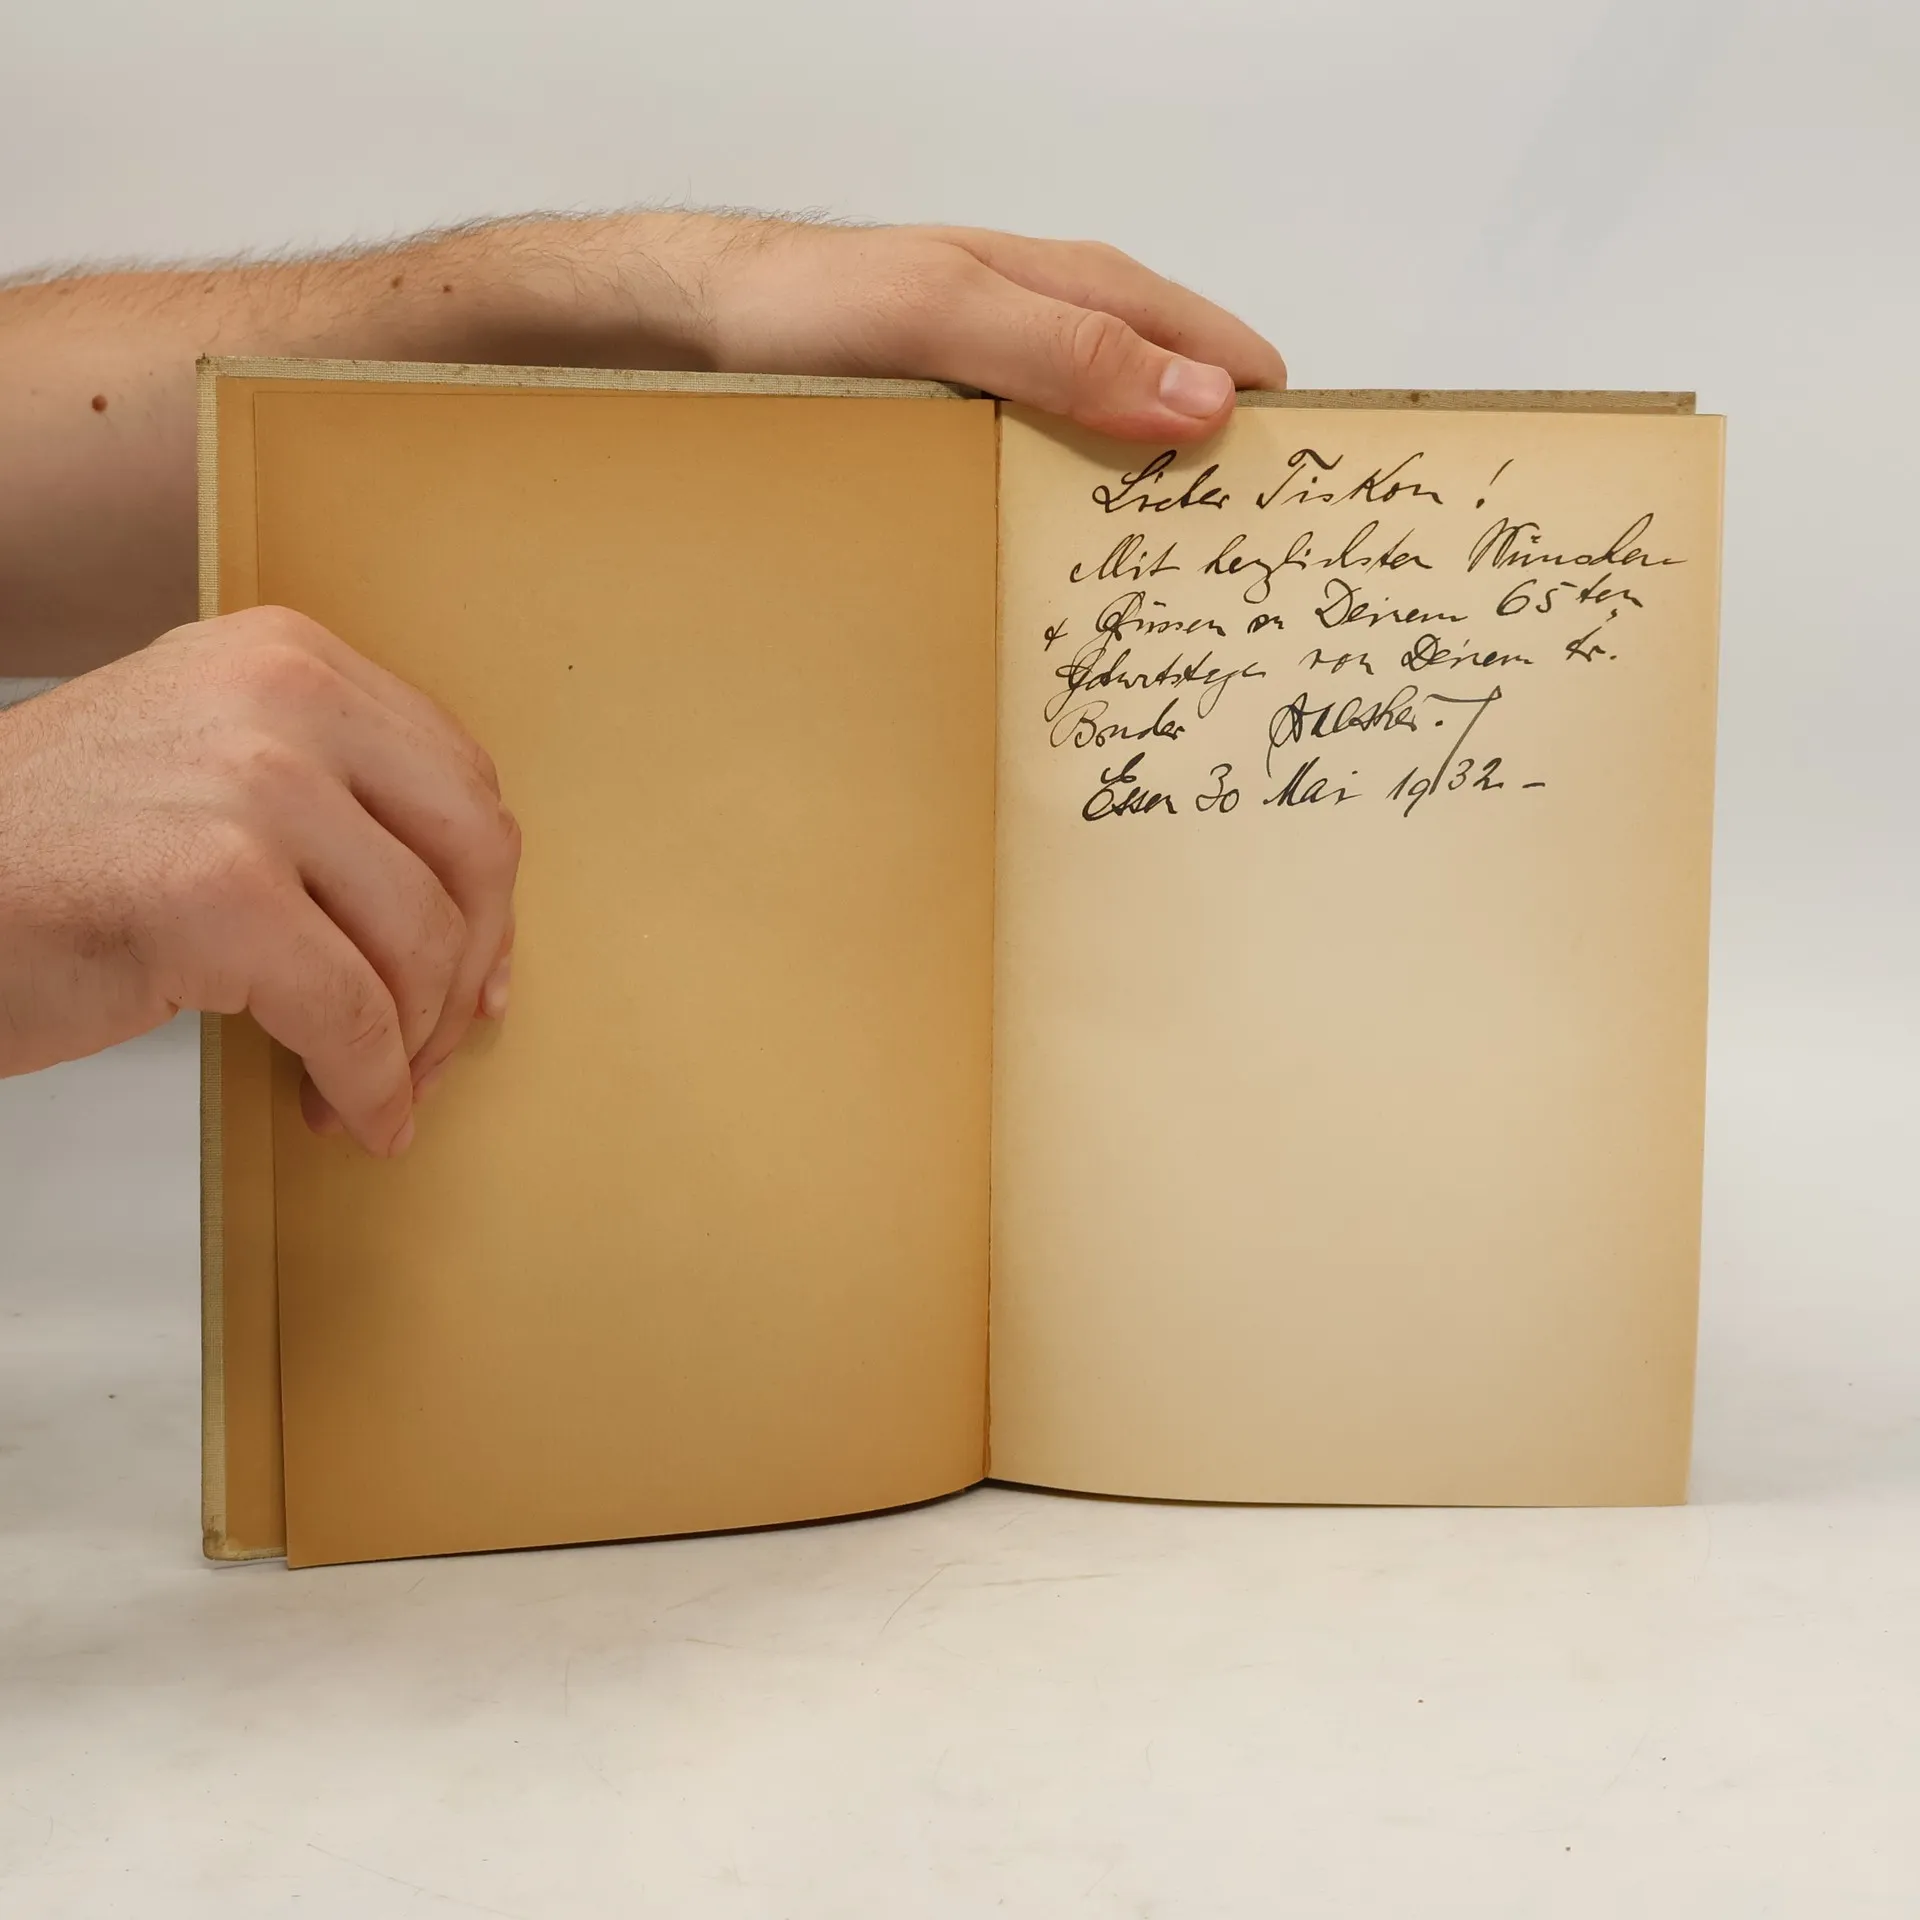 Lieber Tiskon!
Mit herzlichsten Wünschen
& Grüssen zu Deinem 65ten
Geburtstage von Deinem tr.
Bruder
Essen 30 Mai 1932 -